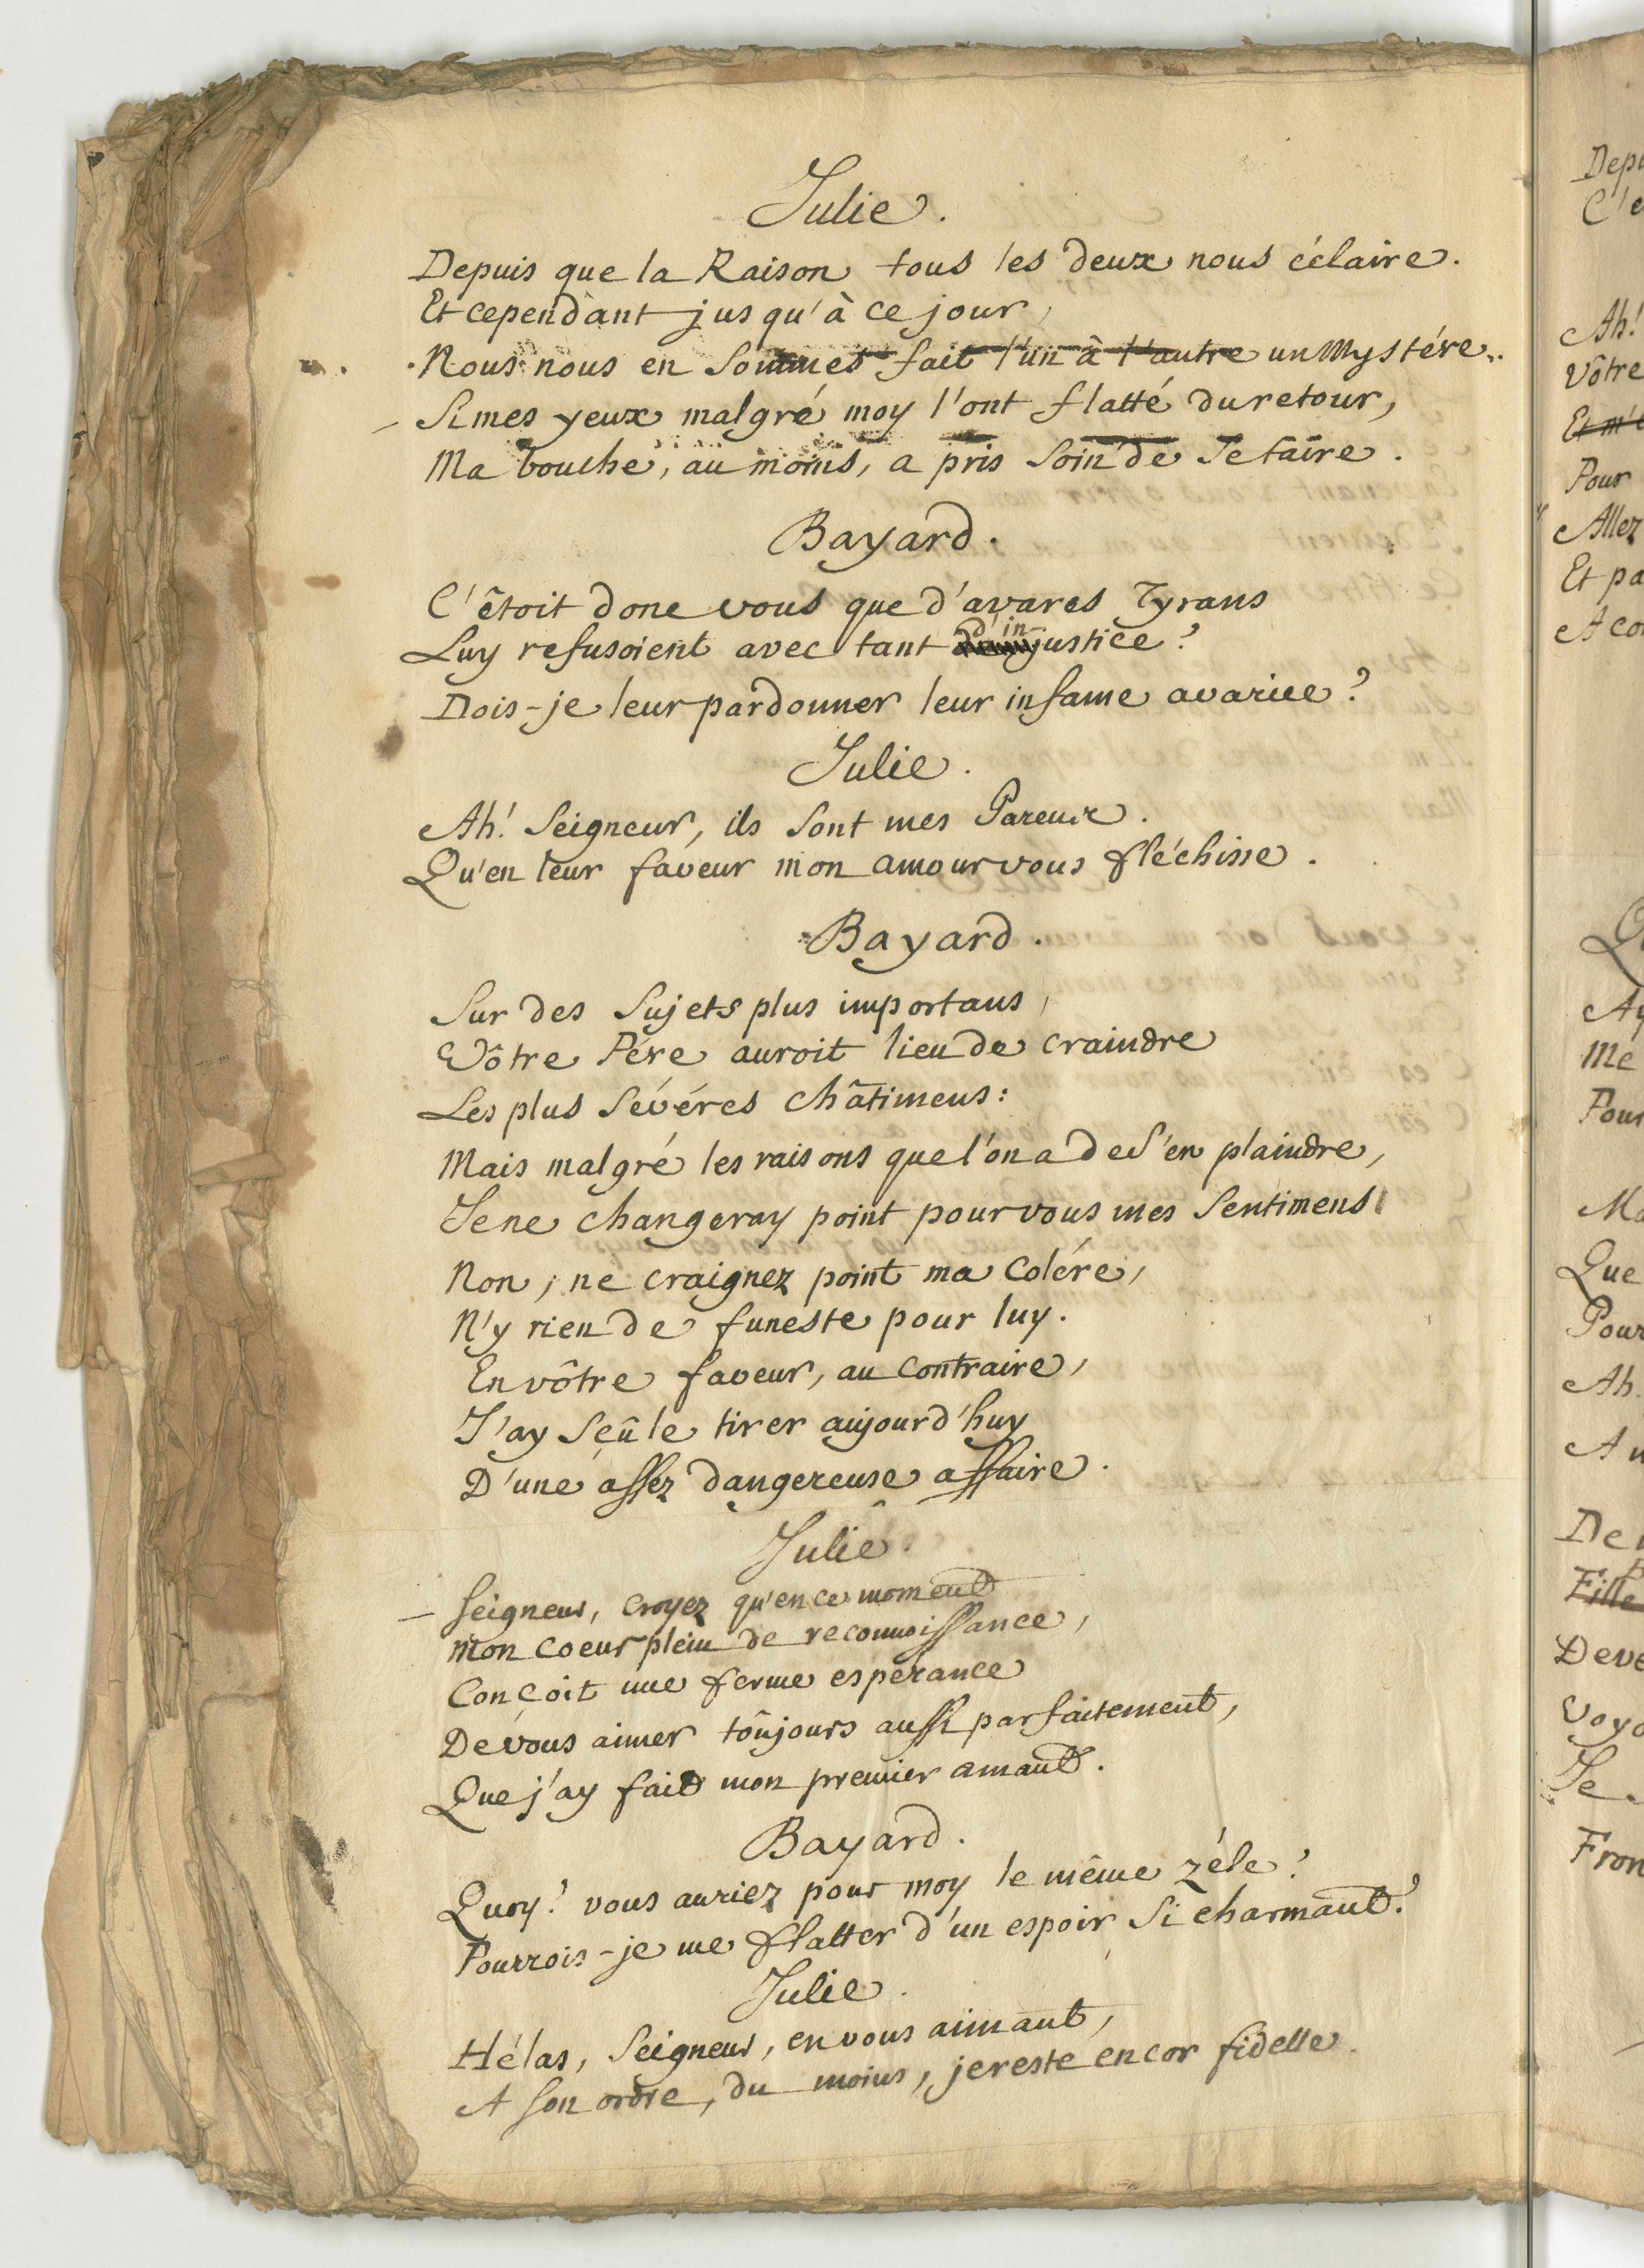 Julie.
Depuis que la Raison tous les deux nous éclaire.
Et cependant jusqu'à ce jour,
Nous nous en sommes fait l'un à l'autre un Mystére.
Si mes yeux malgré moy l'ont flatté du retour,
Ma bouche, au moins, a pris soin de se taire.
Bayard.
C'êtoit donc vous que d'avares Tyrans
Luy refusoient avec tant d'in-justice?
Dois-je leur pardonner leur infame avarice?
Julie.
Ah! Seigneur, ils sont mes Parens.
Qu'en leur faveur mon amour vous fléchisse.
Bayard.
Sur des Sujets plus importans,
Vôtre Pére auroit lieu de craindre
Les plus sévéres châtimens:
Mais malgré les raisons que l'on a de s'en plaindre,
Je ne changeray point pour vous mes sentimens
Non, ne craignez point ma colére,
N'y rien de funeste pour luy.
En vôtre faveur, au contraire,
J'ay sçû le tirer aujourd'huy
D'une assez dangereuse affaire.
Julie.
Seigneur, croyez qu'en ce moment
Mon coeur plein de reconnoissance,
Conçoit une ferme esperance
De vous aimer toûjours aussi parfaitement,
Que j'ay fait mon premier amant.
Bayard.
Quoy? vous auriez pour moy le même zéle?
Pourrois-je me flatter d'un espoir si charmant?
Julie.
Hélas, Seigneur, en vous aimant,
A son ordre, du moins, je reste encor fidelle.
Ah!
Vôtre
Pour
Allez
Et pa
Me
Que
Ah.
Fille
Je